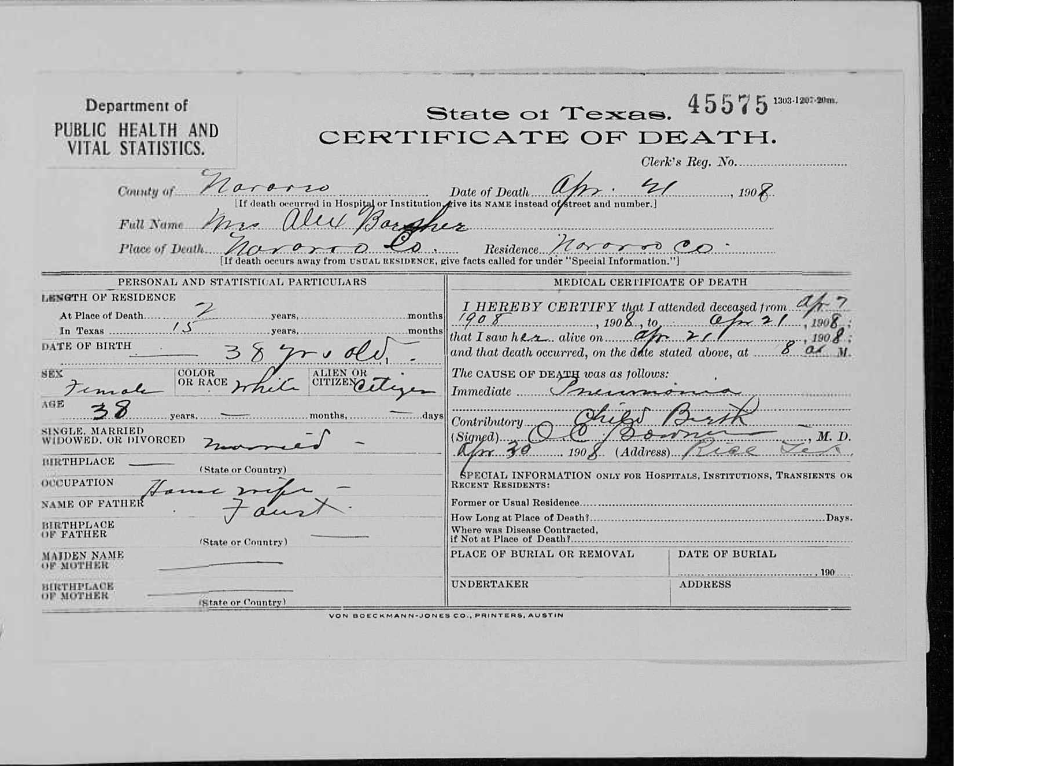 Department of
PUBLIC HEALTH AND
VITAL STATISTICS.
State of Texas. 45575 1303-1207-20m.
CERTIFICATE OF DEATH.
Clerk's Reg. No.
County of Navarro Date of Death Apr. 21, 1908
[If death occurred in Hospital or Institution, give its NAME instead of street and number.]
Full Name Mrs Alex
Place of Death Navarro Co. Residence Navarro Co.
[If death occurs away from USUAL RESIDENCE, give facts called for under "Special Information."]
PERSONAL AND STATISTICAL PARTICULARS
LENGTH OF RESIDENCE
At Place of Death 2 years, months
In Texas 15 years, months
DATE OF BIRTH 38 yrs old.
SEX Female COLOR OR RACE White ALIEN OR CITIZEN Citizen
AGE 38 years, — months, — days
SINGLE, MARRIED
WIDOWED, OR DIVORCED married -
BIRTHPLACE —
(State or Country)
OCCUPATION House wife -
NAME OF FATHER Faust.
BIRTHPLACE
OF FATHER —
(State or Country)
MAIDEN NAME
OF MOTHER —
BIRTHPLACE
OF MOTHER —
(State or Country)
MEDICAL CERTIFICATE OF DEATH
I HEREBY CERTIFY that I attended deceased from Apr 7
1908, 1908, to Apr 21, 1908;
that I saw her alive on Apr 21, 1908;
and that death occurred, on the date stated above, at 8 a M.
The CAUSE OF DEATH was as follows:
Immediate Pneumonia
Contributory Child Birth
(Signed) O C , M. D.
Apr. 30 1908 (Address) Rice Tex
SPECIAL INFORMATION ONLY FOR HOSPITALS, INSTITUTIONS, TRANSIENTS OR
RECENT RESIDENTS:
Former or Usual Residence
How Long at Place of Death? Days.
Where was Disease Contracted,
if Not at Place of Death?
PLACE OF BURIAL OR REMOVAL DATE OF BURIAL
, 190
UNDERTAKER ADDRESS
VON BOECKMANN-JONES CO., PRINTERS, AUSTIN